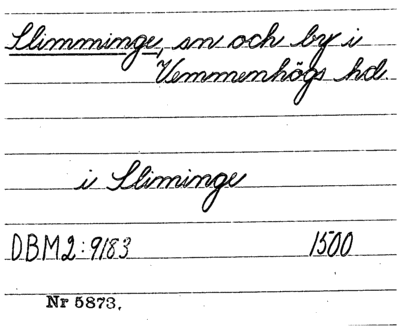 Slimminge, sn och by i
Vemmenhögs hd.
i Sliminge
DBM2:9183 1500
Nr 5873.